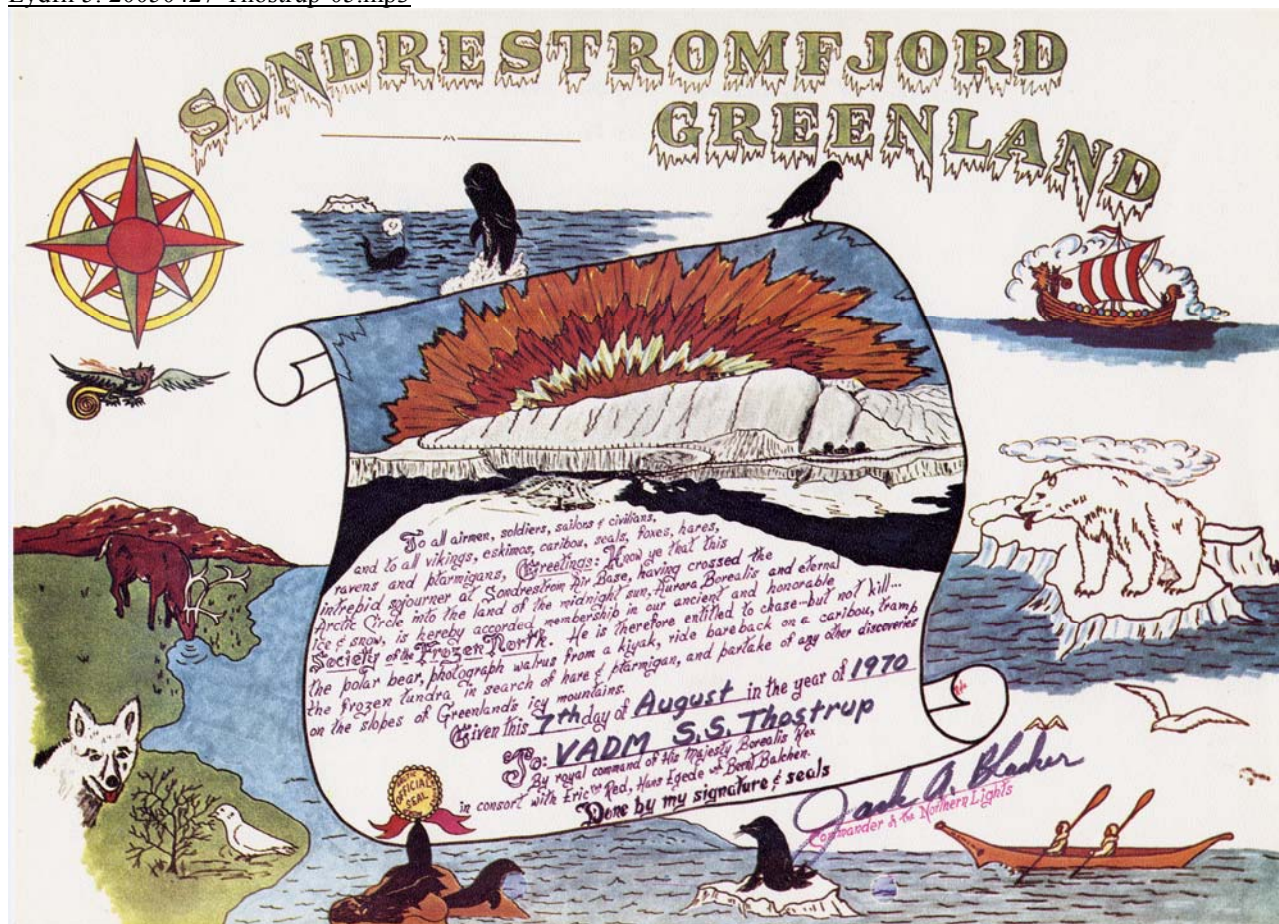 Lydfil 5: 20050427-Thostrup-05.mp3
SONDRESTROMFJORD
GREENLAND
To all airmen, soldiers, sailors & civilians,
and to all vikings, eskimos, caribou, seals, foxes, hares,
ravens and ptarmigans, Greetings: Know ye that this
intrepid sojourner at Sondrestrom Air Base, having crossed the
Arctic Circle into the land of the midnight sun, Aurora Borealis and eternal
ice & snow, is hereby accorded membership in our ancient and honorable
Society of the Frozen North. He is therefore entitled to chase--but not kill---
the polar bear, photograph walrus from a kiyak, ride bareback on a caribou, tramp
the frozen tundra in search of hare & ptarmigan, and partake of any other discoveries
on the slopes of Greenland's icy mountains.
Given this 7th day of August in the year of 1970
To: VADM S.S. Thostrup
By royal command of His Majesty Borealis Rex
in consort with Eric the Red, Hans Egede & Bernt Balchen.
Done by my signature & seals
OFFICIAL
SEAL
Jack A. Blecker
Commander of the Northern Lights